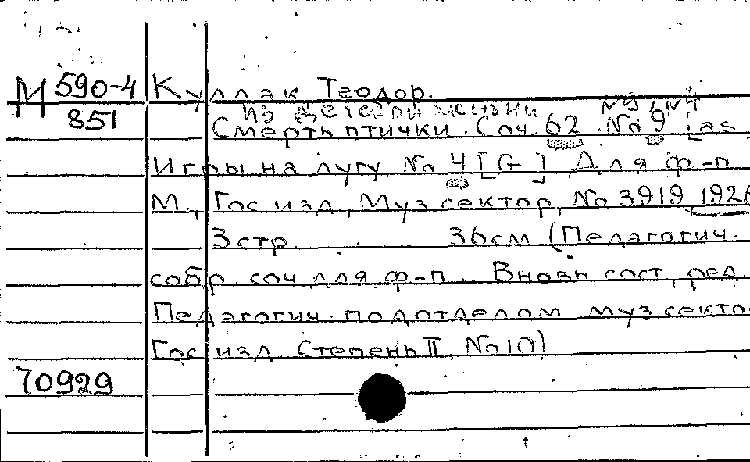 М 590-4 Куллак Теодор.
851 Из детской жизни
Смерть птички. Соч. 62 No 9 [as
Игры на лугу No 4 [G] Для ф-п
М., Гос изд, Муз сектор, No 3919 1926
3 стр. 36см (Педагогич.
собр. соч для ф-п. Вновь сост, ред
Педагогич. подотделом муз секто
Гос изд. Степень II, No 10)
70929